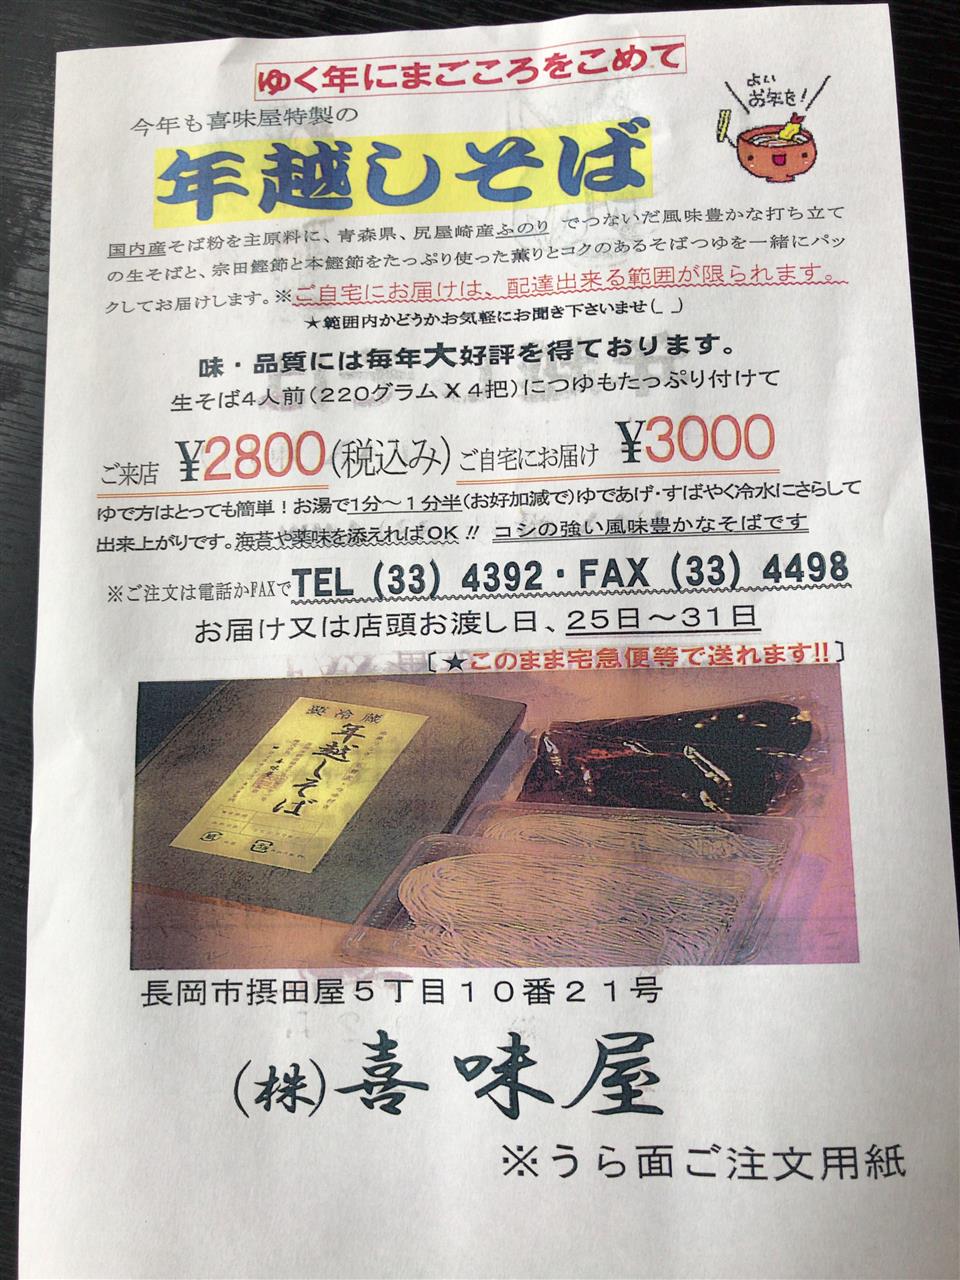 ゆく年にまごころをこめて
よい
お年を!
今年も喜味屋特製の
年越しそば
国内産そば粉を主原料に、青森県、尻屋崎産ふのり でつないだ風味豊かな打ち立て
の生そばと、宗田鰹節と本鰹節をたっぷり使った薫りとコクのあるそばつゆを一緒にパッ
クしてお届けします。※ご自宅にお届けは、配達出来る範囲が限られます。
★範囲内かどうかお気軽にお聞き下さいませ(_ _)
味・品質には毎年大好評を得ております。
生そば4人前(220グラムX4把)につゆもたっぷり付けて
ご来店 ¥2800(税込み) ご自宅にお届け ¥3000
ゆで方はとっても簡単!お湯で1分〜1分半(お好加減で)ゆであげ・すばやく冷水にさらして
出来上がりです。海苔や薬味を添えればOK!! コシの強い風味豊かなそばです
※ご注文は電話かFAXでTEL (33) 4392・FAX (33) 4498
お届け又は店頭お渡し日、25日〜31日
[★このまま宅急便等で送れます!!]
要冷蔵
年越しそば
長岡市摂田屋5丁目10番21号
(株)喜味屋
※うら面ご注文用紙